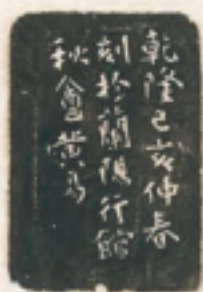 乾隆己亥仲春
刻於蘭陽行館
秋盦黃易